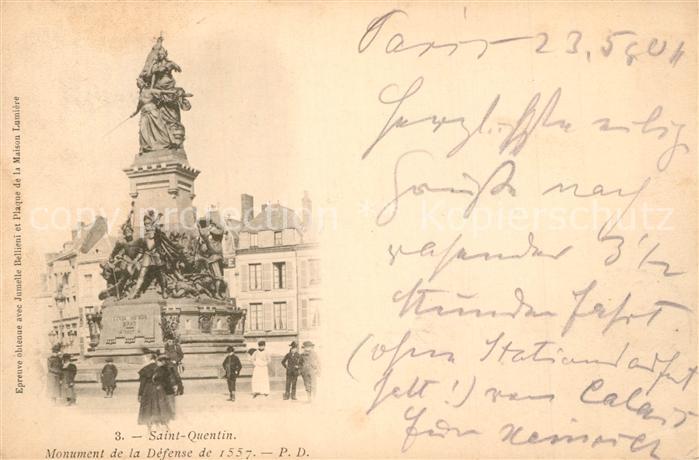 Epreuve obtenue avec Jumelle Bellieni et Plaque de la Maison Lumière
Paris 23.5.
Herzlichste eilig
Grüße nach
rasender 3½
Stundenfahrt
(ohne Stationsaufent
halt!) von Calais
Heinrich
copyright protection
Kopierschutz
3. — Saint-Quentin.
Monument de la Défense de 1557. — P. D.